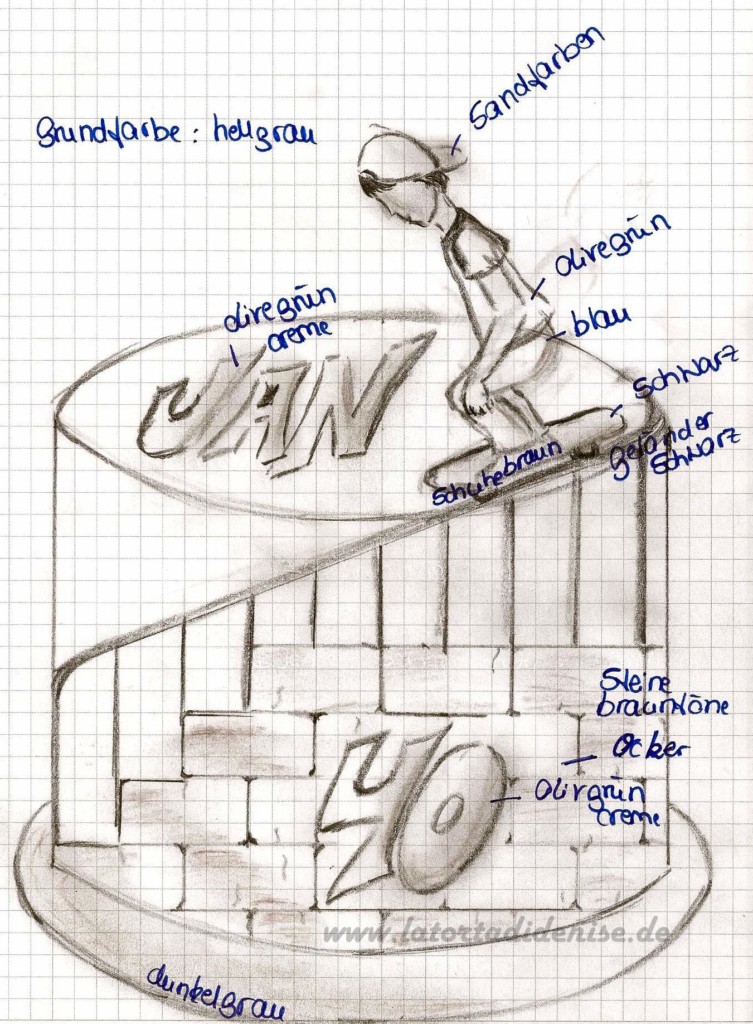 Sandfarben
Grundfarbe : hellgrau
olivegrün
olivegrün
creme
blau
schwarz
JAN
geländer
schwarz
schuhe braun
Steine
brauntöne
Ocker
40
Olivgrün
creme
www.latortadidenise.de
dunkelgrau